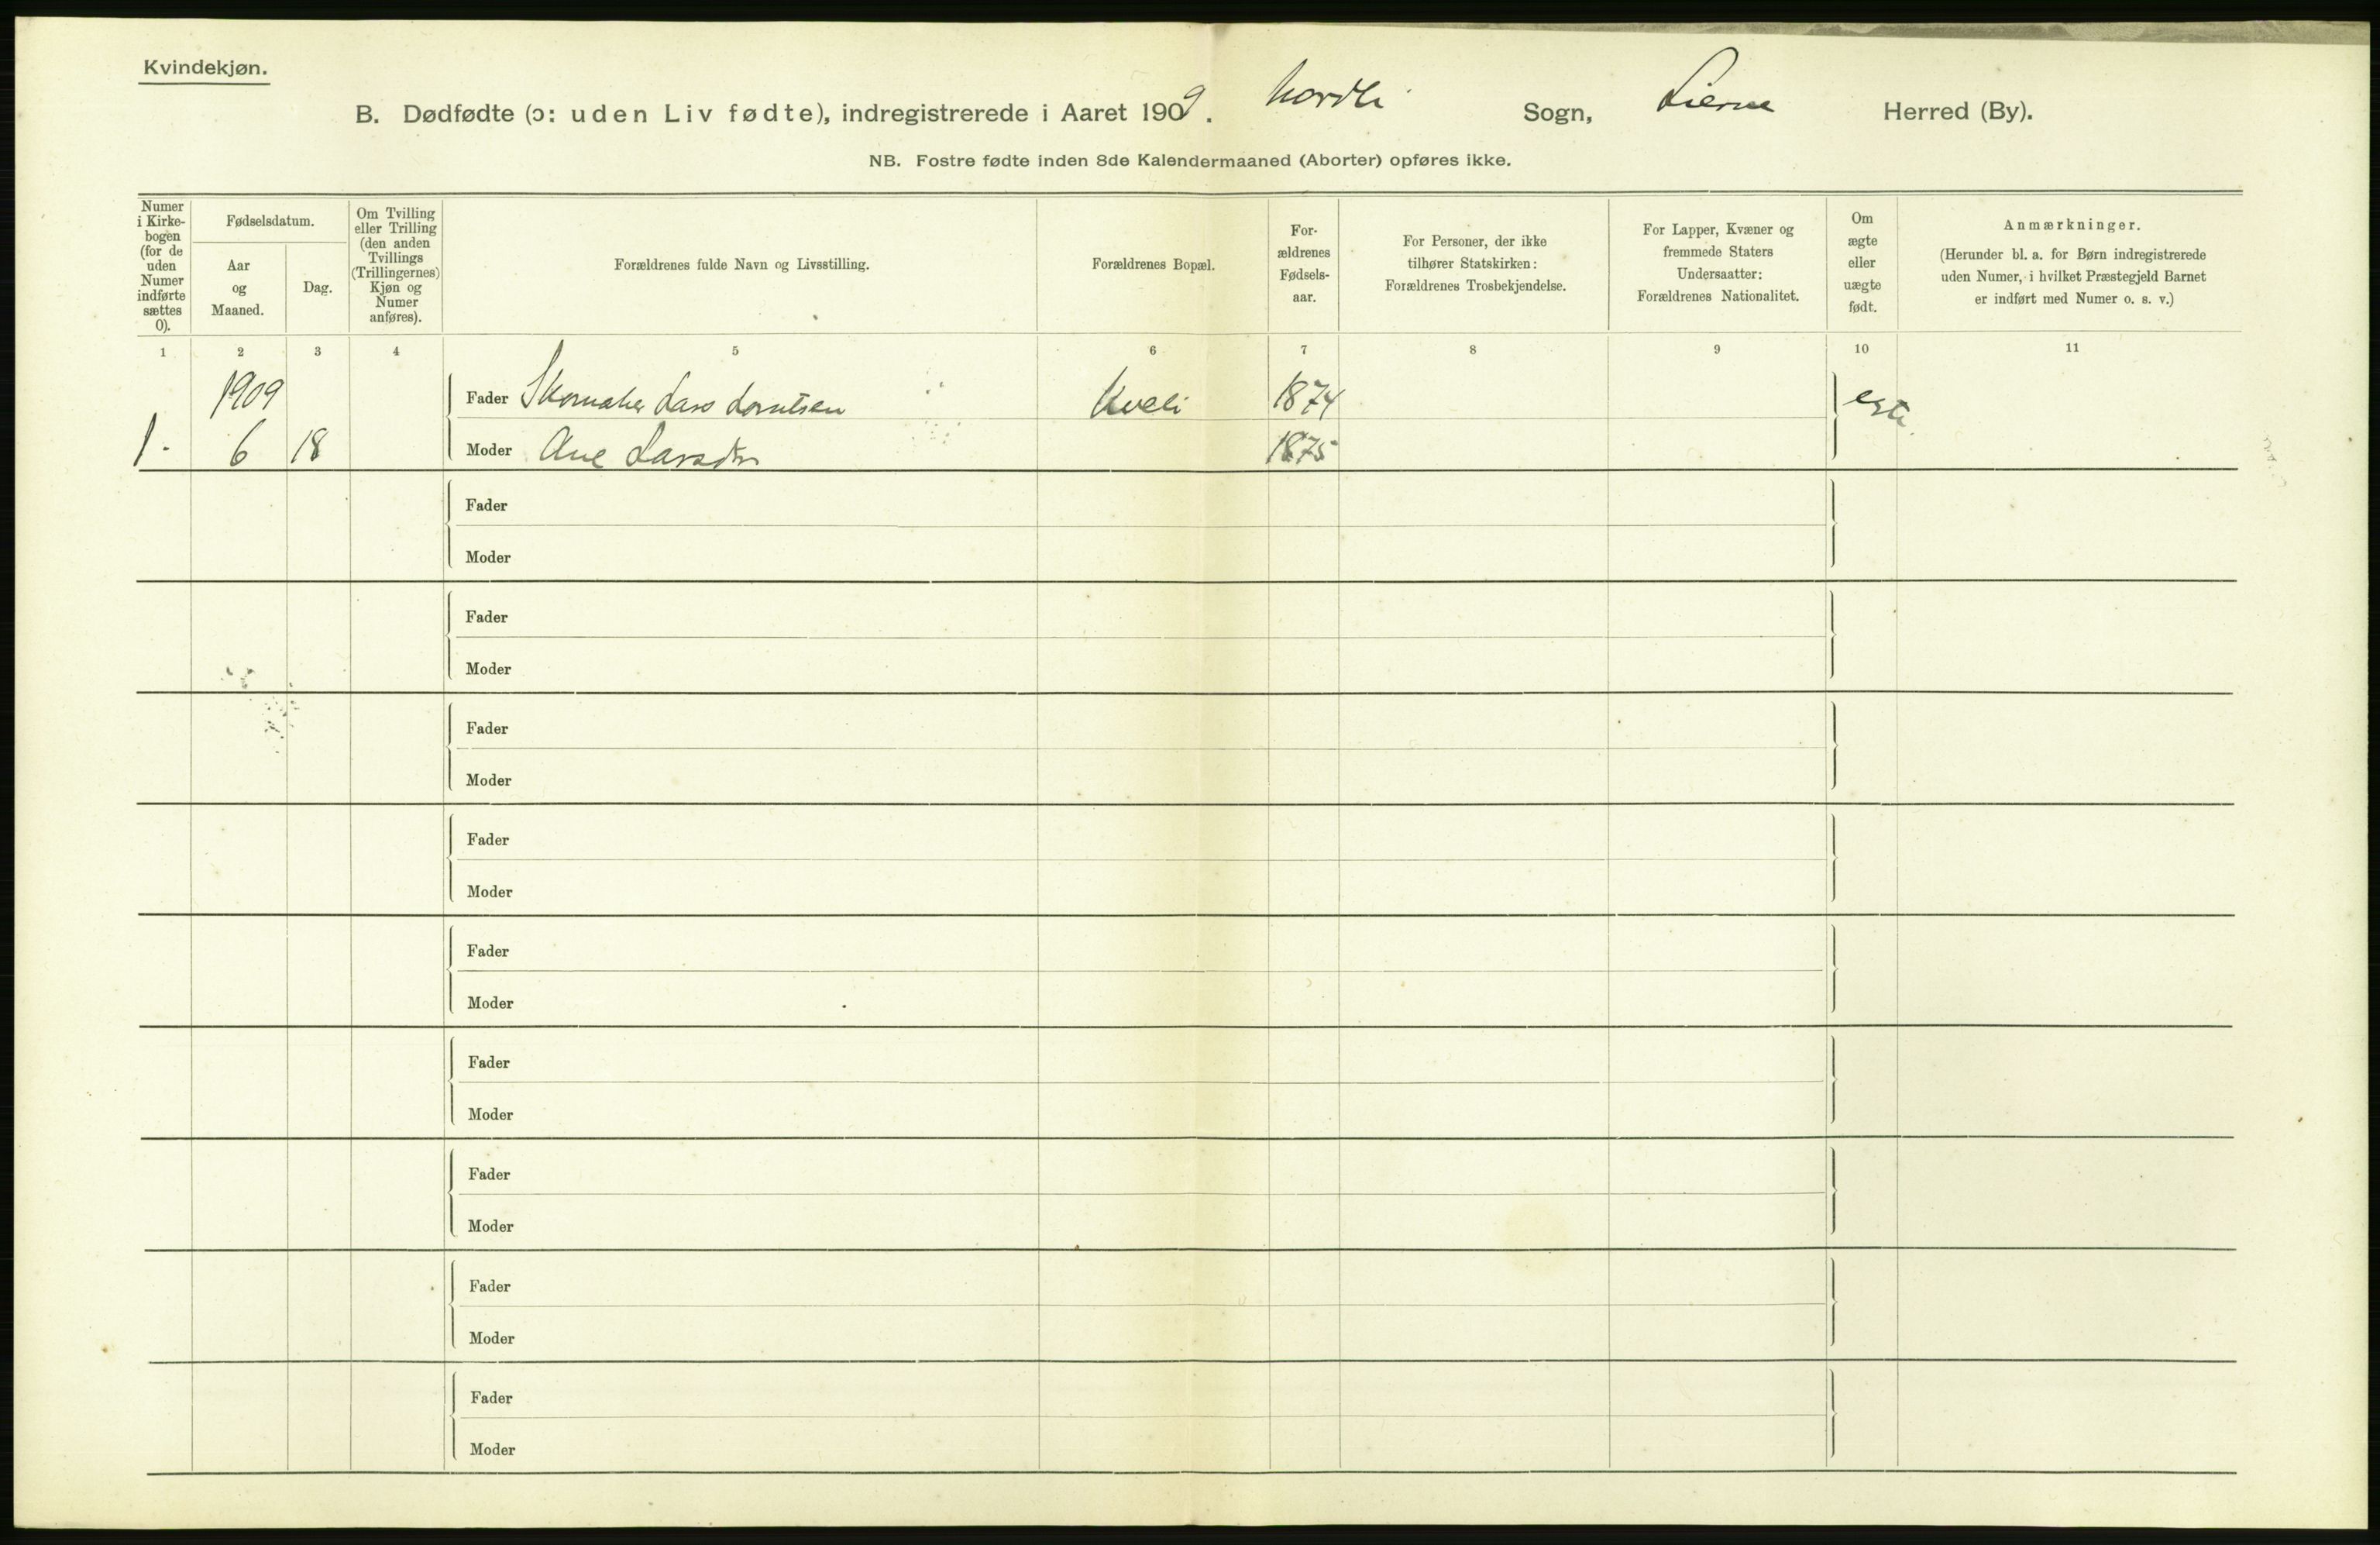 Kvindekjøn.
B. Dødfødte (ɔ: uden Liv fødte), indregistrerede i Aaret 1909. Nordli Sogn, Lierne Herred (By).
NB. Fostre fødte inden 8de Kalendermaaned (Aborter) opføres ikke.
Numer
i Kirke-
bogen
(for de
uden
Numer
indførte
sættes
0).
Fødselsdatum.
Aar
og
Maaned.
Dag.
Om Tvilling
eller Trilling
(den anden
Tvillings
(Trillingernes)
Kjøn og
Numer
anføres).
Forældrenes fulde Navn og Livsstilling.
Forældrenes Bopæl.
For-
ældrenes
Fødsels-
aar.
For Personer, der ikke
tilhører Statskirken:
Forældrenes Trosbekjendelse.
For Lapper, Kvæner og
fremmede Staters
Undersaatter:
Forældrenes Nationalitet.
Om
ægte
eller
uægte
født.
Anmærkninger.
(Herunder bl. a. for Børn indregistrerede
uden Numer, i hvilket Præstegjeld Barnet
er indført med Numer o. s. v.)
1 2 3 4 5 6 7 8 9 10 11
1909 Fader Skomaker Lars Lorntsen Kveli 1874 egte
1. 6 18 Moder Ane Larsdtr 1875
Fader
Moder
Fader
Moder
Fader
Moder
Fader
Moder
Fader
Moder
Fader
Moder
Fader
Moder
Fader
Moder
Fader
Moder